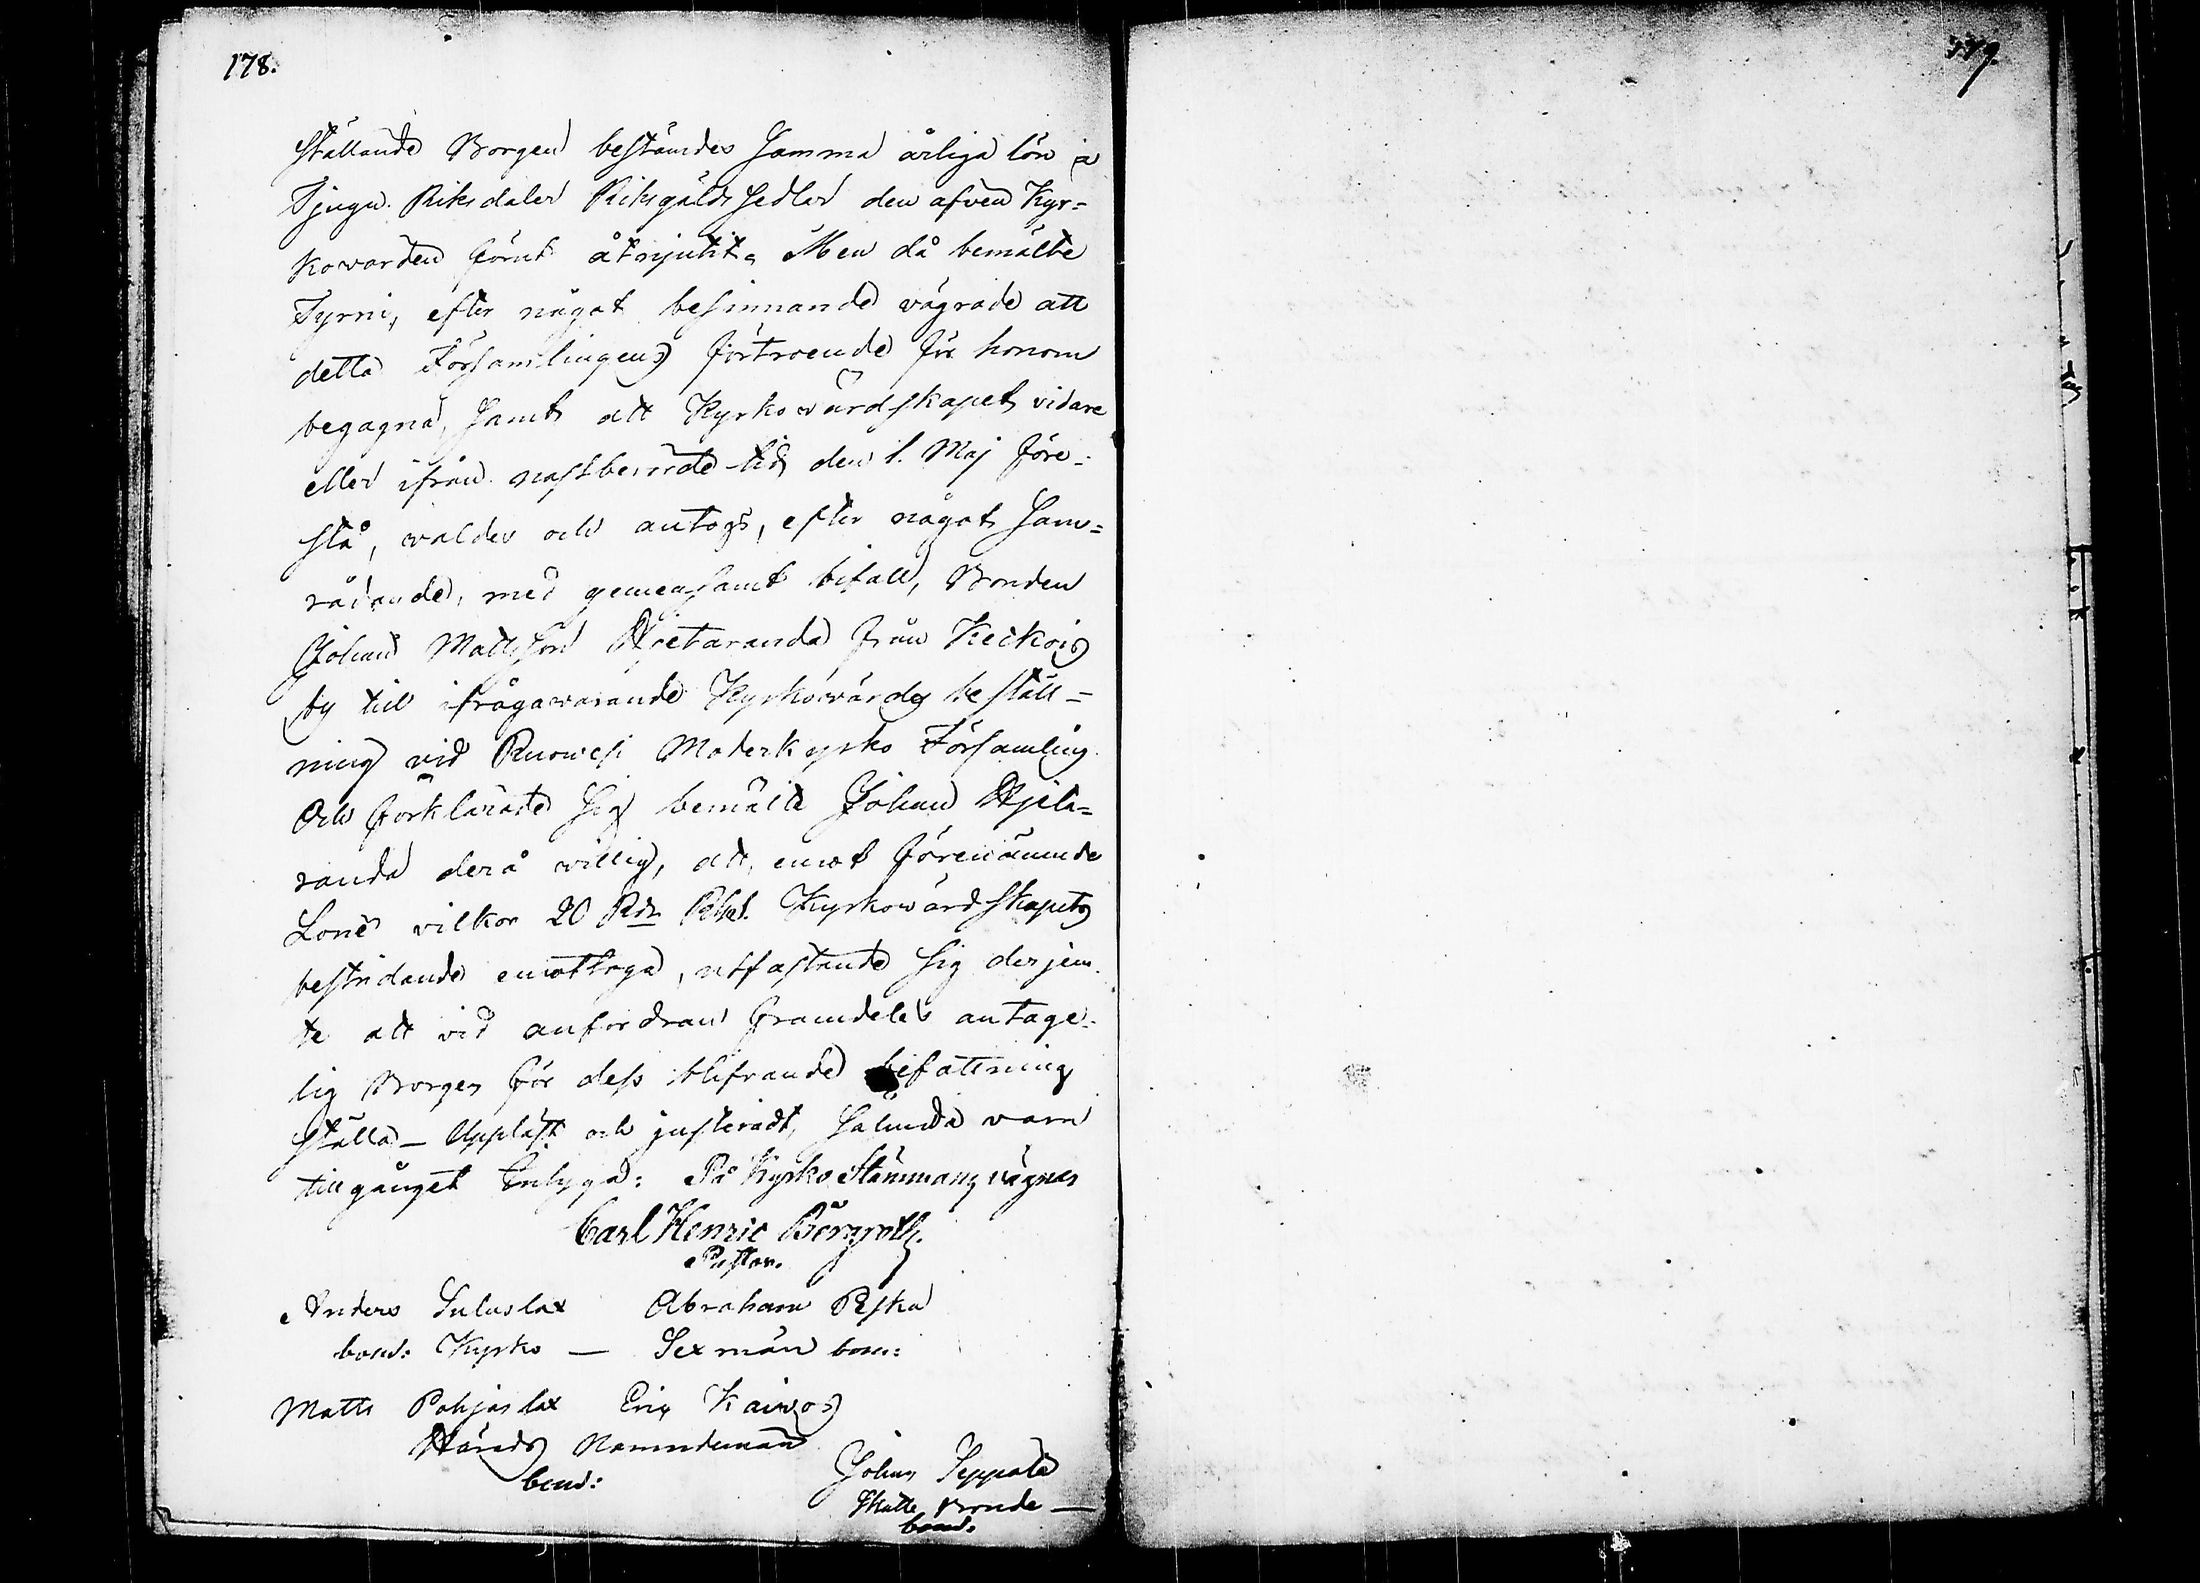 178.
179.
ställande Borgen bestämdes Samma årliga lön a
Tjugu Riksdaler Riksgälds Sedlar den afven Kyr=
kovärden förut åtnjutit. Men då bemälte
Tyrni, efter något besinnande vägrade att
detta Församlingens förtroende för honom
begagna, Samt att Kyrkowärdskapet vidare
eller ifrån nästberörde tid den 1. Maj före=
stå, waldes och antogs, efter något Sam=
rådande, med gemensamt bifall, Bonden
Johan Mattsson Hjetaranda från Keckois
by till ifrågawarande Kyrkowärds beställ=
ning vid Ruowesi Moderkyrko Församling.
Och förklarade Sig bemälte Johan Hjeta=
randa derå willig, att emot förenämnde
Löne vilkor 20 Rdr Rgs. Kyrkowärdskapets
bestridande emottaga, utfästande Sig derjem
te att vid anfordran framdeles antage=
lig Borgen för dess blifvande befattning
ställa – Uppläst och justeradt, Sålunda vara
tillgånget betyga: På Kyrko Stämmans vägnar
Carl Henric Bergroth.
Pastor.
Anders Suluslax Abraham Pyska
bom: Kyrko – Sexmän bom:
Matts Pohjaslax Eric Kaivos
Härads Nämndemän
bom:
Johan Seppälä
Skatte Bonde –
bom.